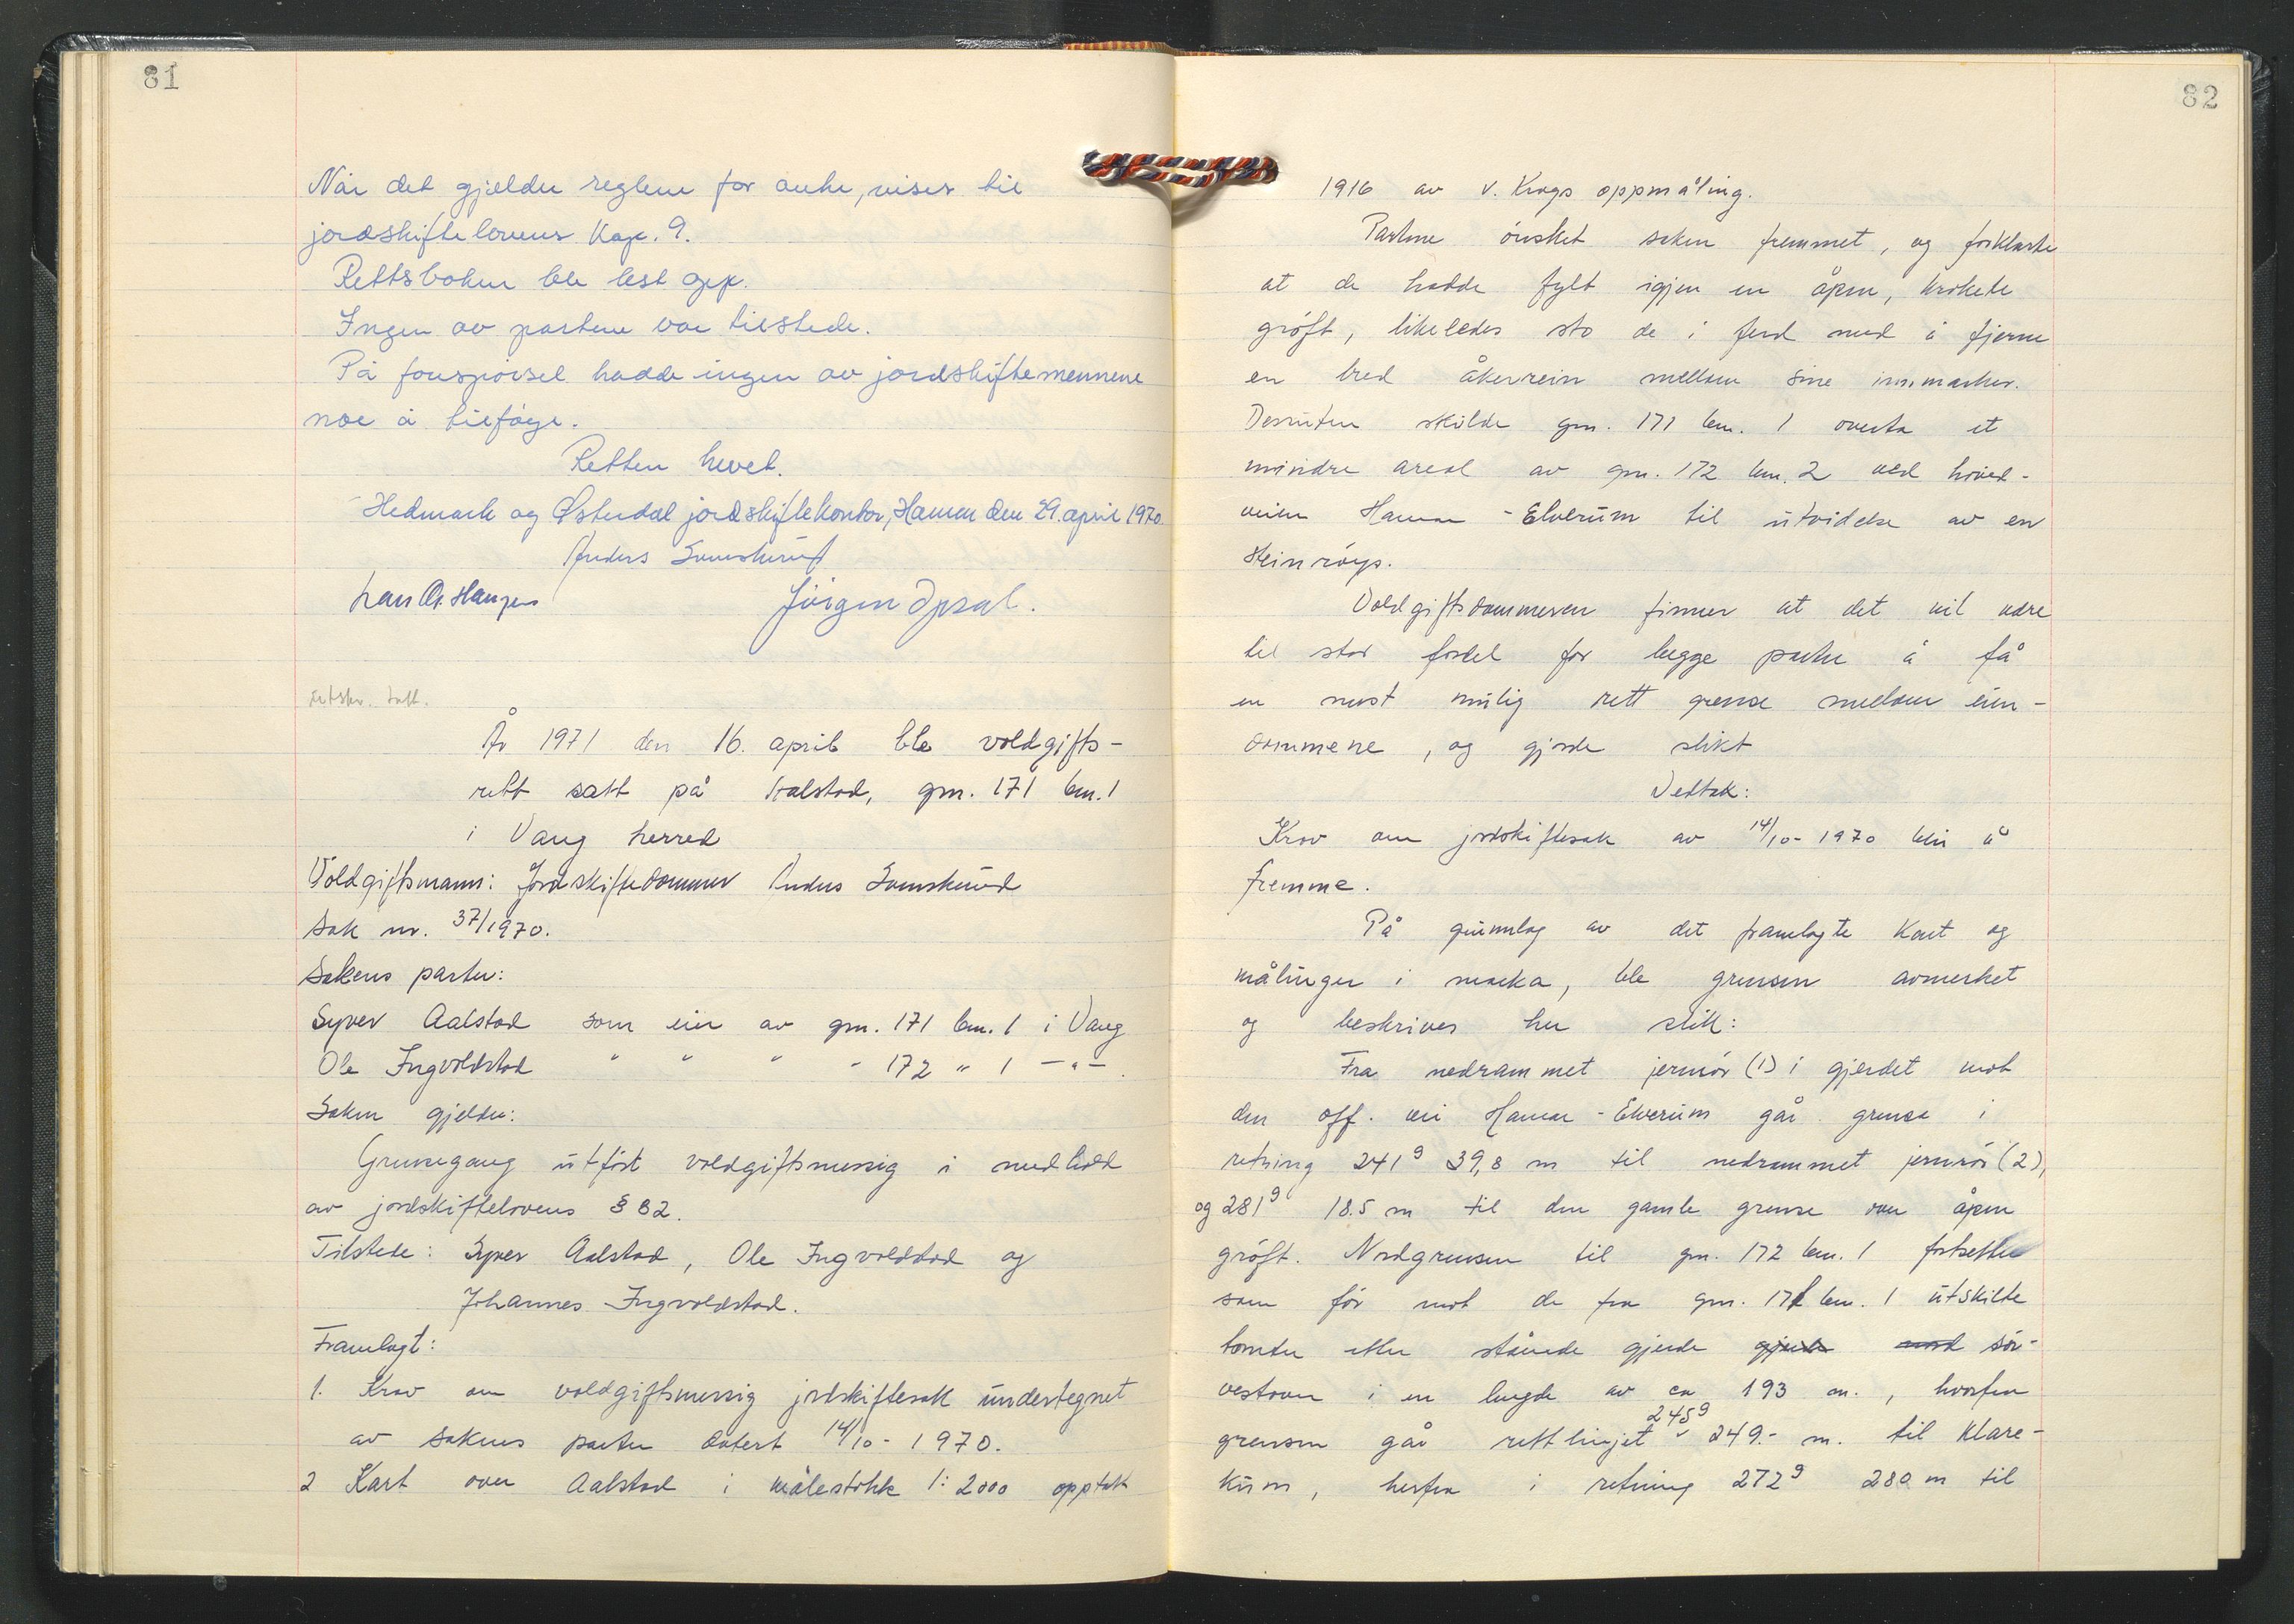 81
Når det gjelder reglene for anke, vises til
jordskiftelovens Kap. 9.
Rettsboken ble lest opp.
Ingen av partene var tilstede.
På forespørsel hadde ingen av jordskiftemennene
noe å tilføye.
Retten hevet.
Hedmark og Østerdal jordskiftekontor, Hamar den 29. april 1970.
Anders
Jørgen Opsal.
Utskr. tatt.
År 1971 den 16. april ble voldgifts-
rett satt på Aalstad, gnr. 171 bnr. 1
i Vang herred
Voldgiftsmann: Jordskiftedommer Anders
Sak nr. 37/1970.
Sakens parter:
Syver Aalstad som eier av gnr. 171 bnr. 1 i Vang
Ole Ingvoldstad " " " " 172 " 1 —"—.
Saken gjelder:
Grensegang utført voldgiftsmessig i medhold
av jordskiftelovens § 82.
Tilstede: Syver Aalstad, Ole Ingvoldstad og
Johannes Ingvoldstad.
Framlagt:
1. Krav om voldgiftsmessig jordskiftesak undertegnet
av sakens parter datert 14/10-1970.
2 Kart over Aalstad i målestokk 1:2000 opptatt
82
1916 av v. Krogs oppmåling.
Partene ønsket saken fremmet, og forklarte
at de hadde fylt igjen en åpen, krokete
grøft, likeledes sto de i ferd med å fjerne
en bred åkerrein mellom sine innmarker.
Desuten skulde gnr. 171 bnr. 1 overta et
mindre areal av gnr. 172 bnr. 2 ved hoved-
veien Hamar - Elverum til utvidelse av en
steinrøys.
Voldgiftsdommeren finner at det vil være
til stor fordel for begge parter å få
en mest mulig rett grense mellom eien-
dommene, og gjorde slikt
Vedtak:
Krav om jordskiftesak av 14/10-1970 blir å
fremme.
På grunnlag av det framlagte kart og
målinger i marka, ble grensen avmerket
og beskrives her slik:
Fra nedrammet jernrør (1) i gjerdet mot
den off. vei Hamar - Elverum går grensa i
retning 241g 39,8 m til nedrammet jernrør (2),
og 281g 18.5 m til den gamle grense over åpen
grøft. Nordgrensen til gnr. 172 bnr. 1 fortsetter
som før mot de fra gnr. 171 bnr. 1 utskilte
tomter etter stående gjerde gjerde nord sør-
vestover i en lengde av ca 193 m., hvorfra
grensen går rettlinjet 245g 249.- m. til Klare-
kum, herfra i retning 272g 280 m til